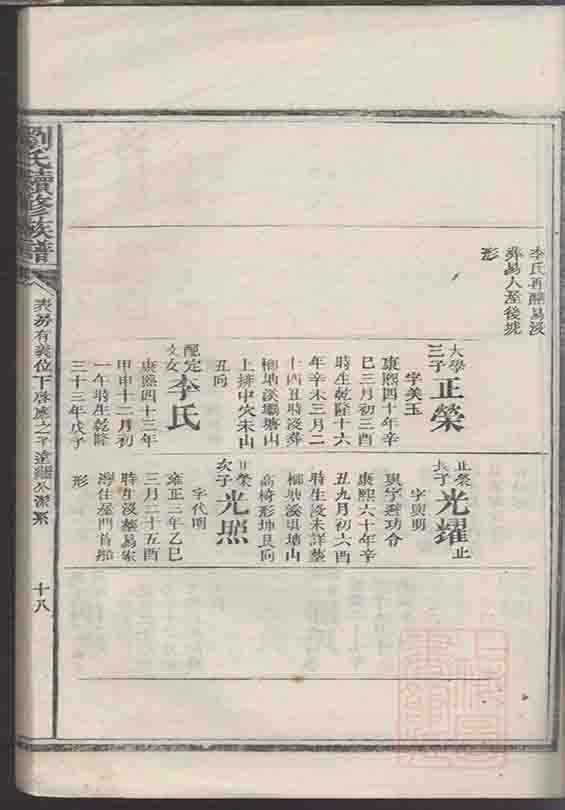 李氏再醮易沒
葬易人屋後虎
形
大學
三子
正榮
字美玉
康熙四十年辛
巳三月初三酉
時生乾隆十六
年辛未三月二
十酉丑時沒葬
柳塘溪壩塘山
上排中穴未山
丑向
配定
文女
李氏
康熙四十三年
甲申十二月初
一午時生乾隆
三十三年戊子
正榮
長子
光耀
止
字與明
康熙六十年辛
丑九月初六酉
時生沒未詳葬
柳塘溪壩塘山
高椅形坤艮向
正榮
次子
光照
字代明
雍正三年乙巳
三月二十五酉
時生沒葬易家
灣住屋門首
形
劉氏續修族譜
十八